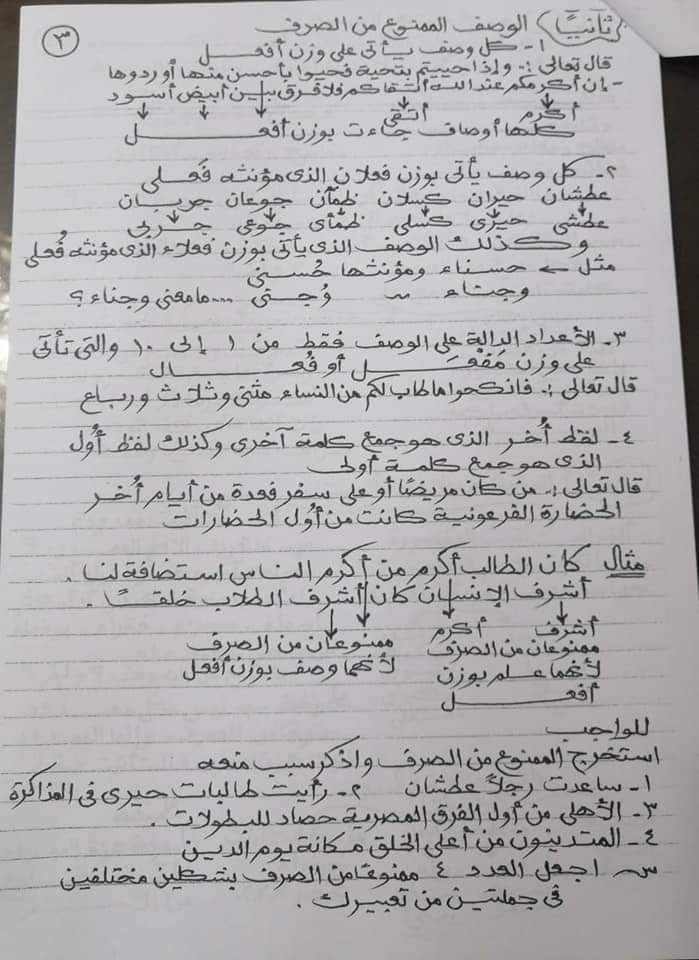 ٣
ثانيًا) الوصف الممنوع من الصرف
١- كل وصف يأتى على وزن أفعل
قال تعالى :- وإذا حييتم بتحية فحيوا بأحسن منها أو ردوها
- إن أكرمكم عند الله أتقاكم فلا فرق بين أبيض أسود
أكرم أتقى
كلها أوصاف جاءت بوزن أفعل
٢- كل وصف يأتى بوزن فعلان الذى مؤنثه فَعلى
عطشان حيران كسلان ظمآن جوعان جربان
عطشى حيرى كسلى ظمأى جوعى جربى
وكذلك الوصف الذى يأتى بوزن فعلاء الذى مؤنثه فُعلى
مثل ← حسناء ومؤنثها حُسنى
وجناء ~ وُجنى ... ما معنى وجناء ؟
٣- الأعداد الدالة على الوصف فقط من ١ إلى ١٠ والتى تأتى
على وزن مَفْعَل أو فُعال
قال تعالى :- فانكحوا ما طاب لكم من النساء مثنى وثلاث ورباع
٤- لفظ أُخر الذى هو جمع كلمة آخرى وكذلك لفظ أُول
الذى هو جمع كلمة أولى
قال تعالى :- من كان مريضًا أو على سفر فعدة من أيام أُخر
الحضارة الفرعونية كانت من أُول الحضارات
مثال كان الطالب أكرم من أكرم الناس استضافة لنا .
أشرف الإنسان كان أشرف الطلاب خلقًا .
أشرف أكرم
ممنوعان من الصرف ممنوعان من الصرف
لأنهما علم بوزن لأنهما وصف بوزن أفعل
أفعل
للواجب
استخرج الممنوع من الصرف واذكر سبب منعه
١- ساعدت رجلاً عطشان ٢- رأيت طالبات حيرى فى المذاكرة
٣- الأهلى من أول الفرق المصرية حصاد للبطولات .
٤- المتدينون من أعلى الخلق مكانة يوم الدين
س اجعل العدد ٤ ممنوعًا من الصرف بشكلين مختلفين
فى جملتين من تعبيرك .